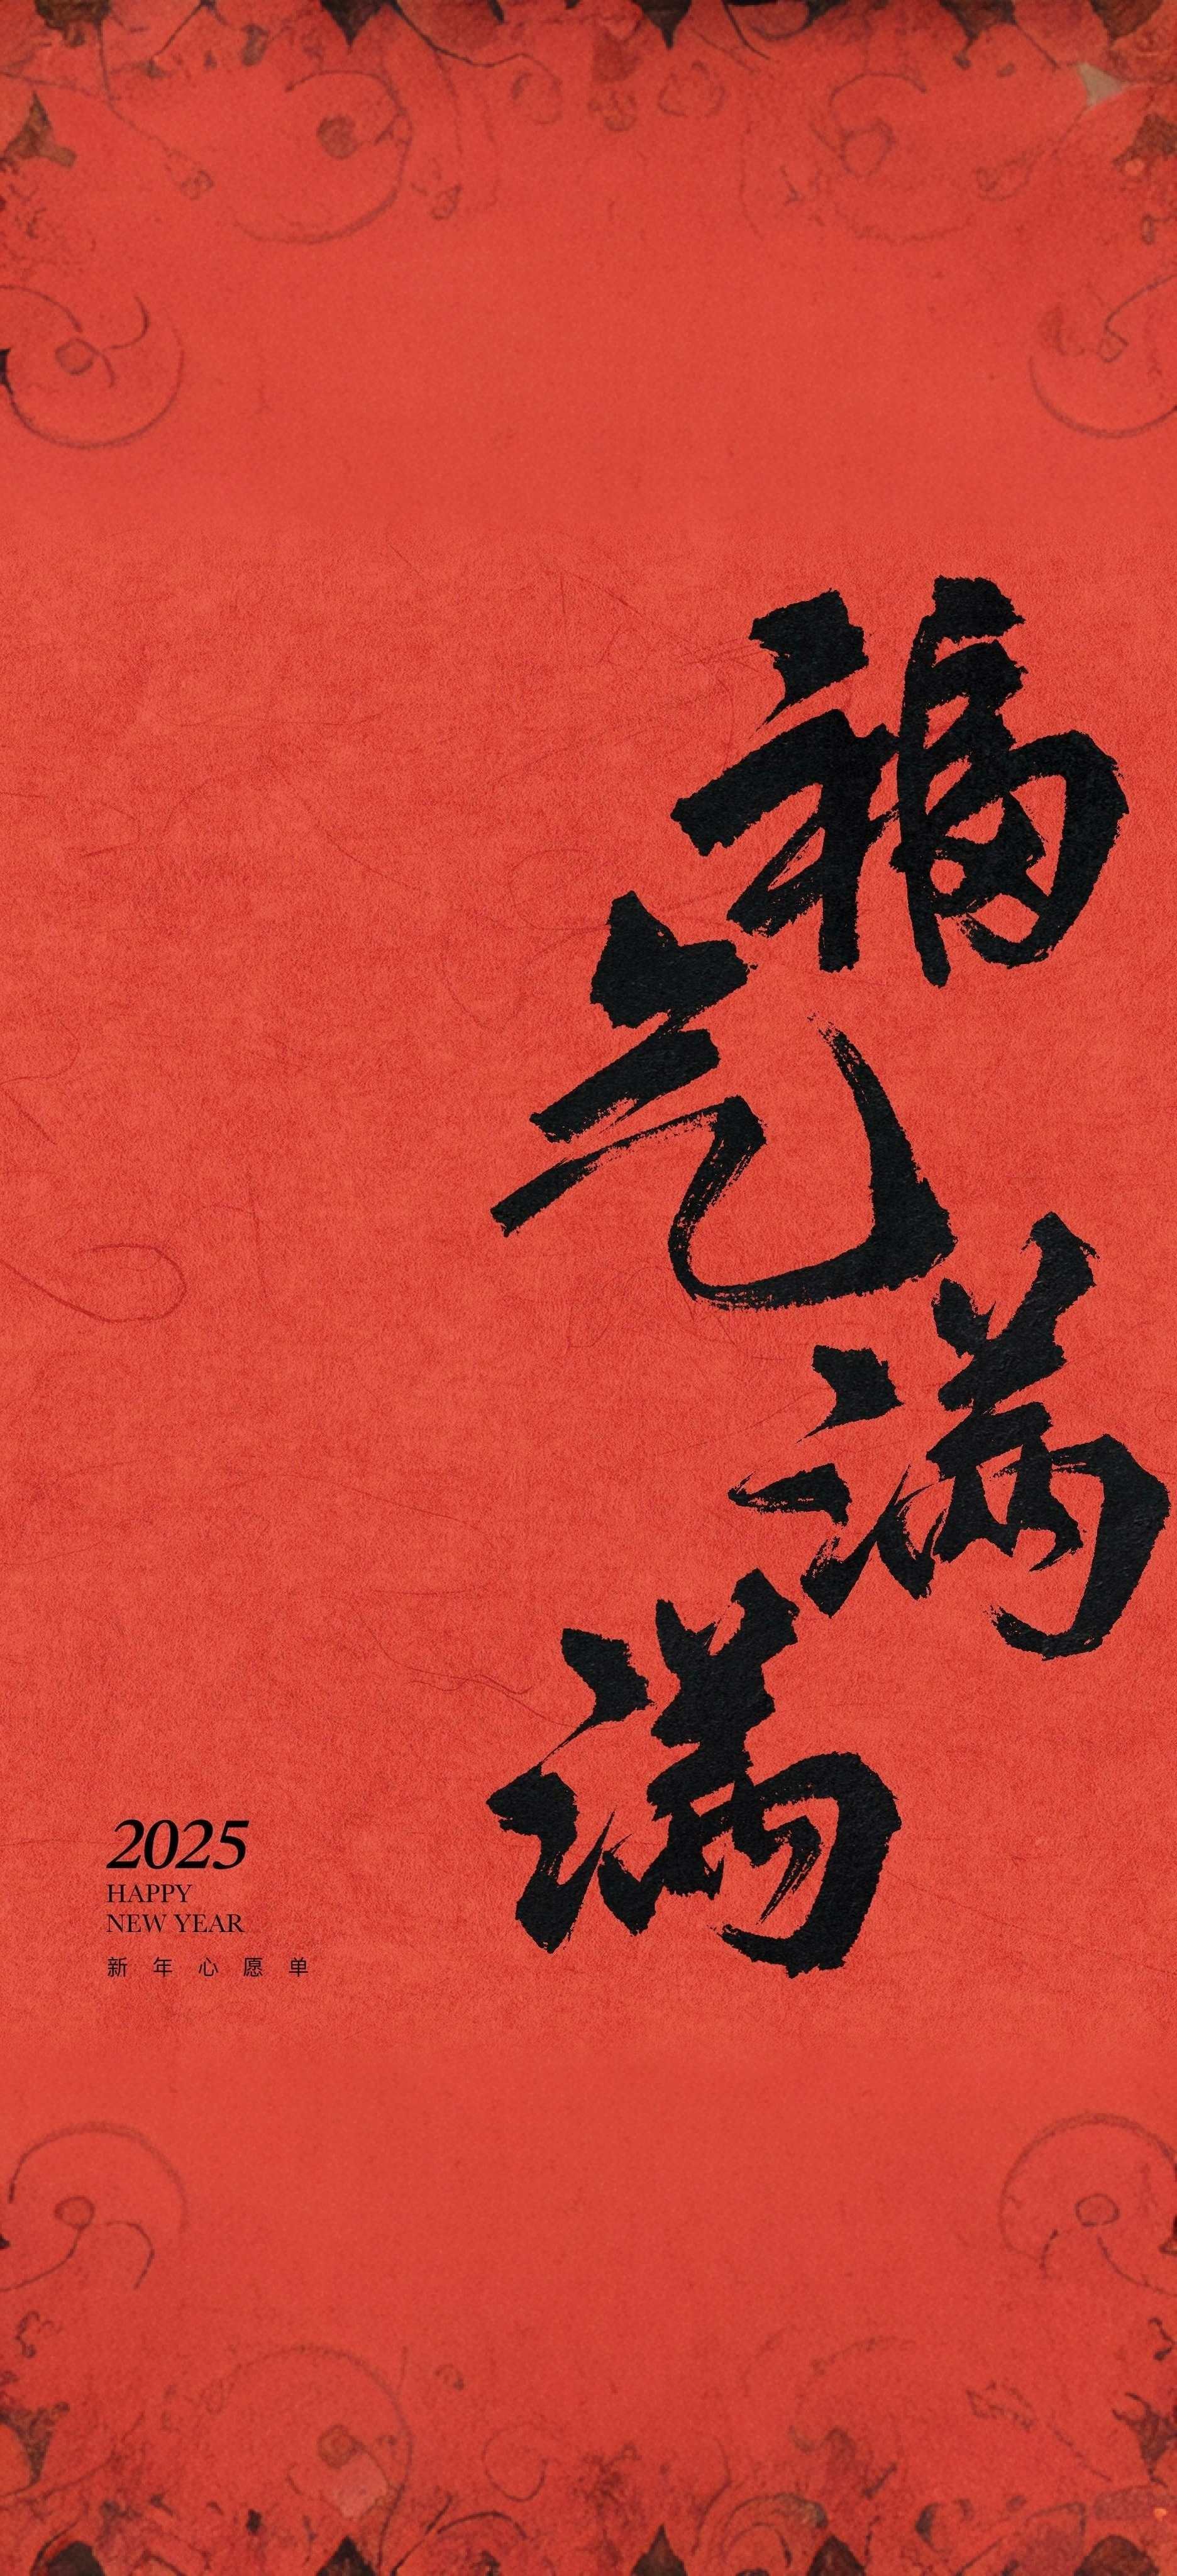 福气满满
2025
HAPPY
NEW YEAR
新年心愿单